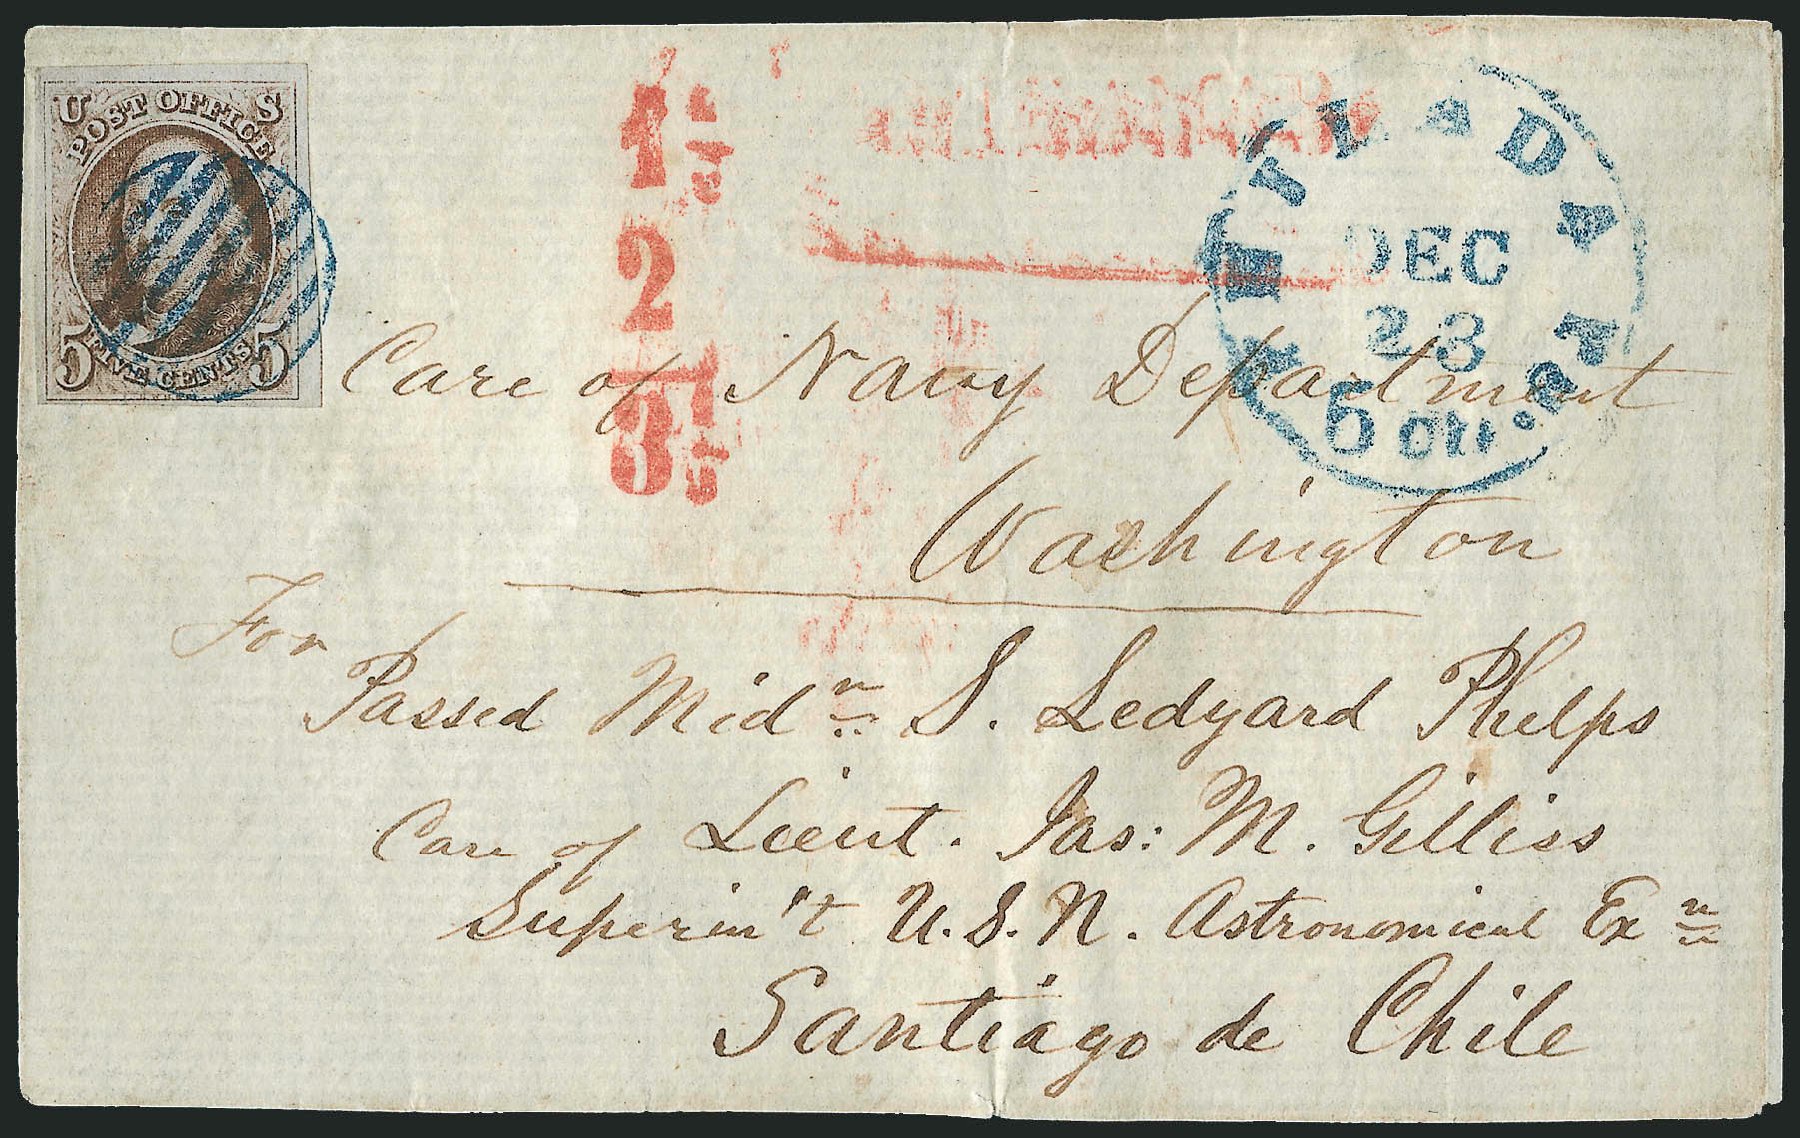 U S
POST OFFICE
5 FIVE CENTS 5
1 1/2
2
3 1/2
PHILADA
DEC
23
5 cts.
Care of Navy Department
Washington
For
Passed Midn S. Ledyard Phelps
Care of Lieut. Jas: M. Gilliss
Superin't U.S.N. Astronomical Exn
Santiago de Chile